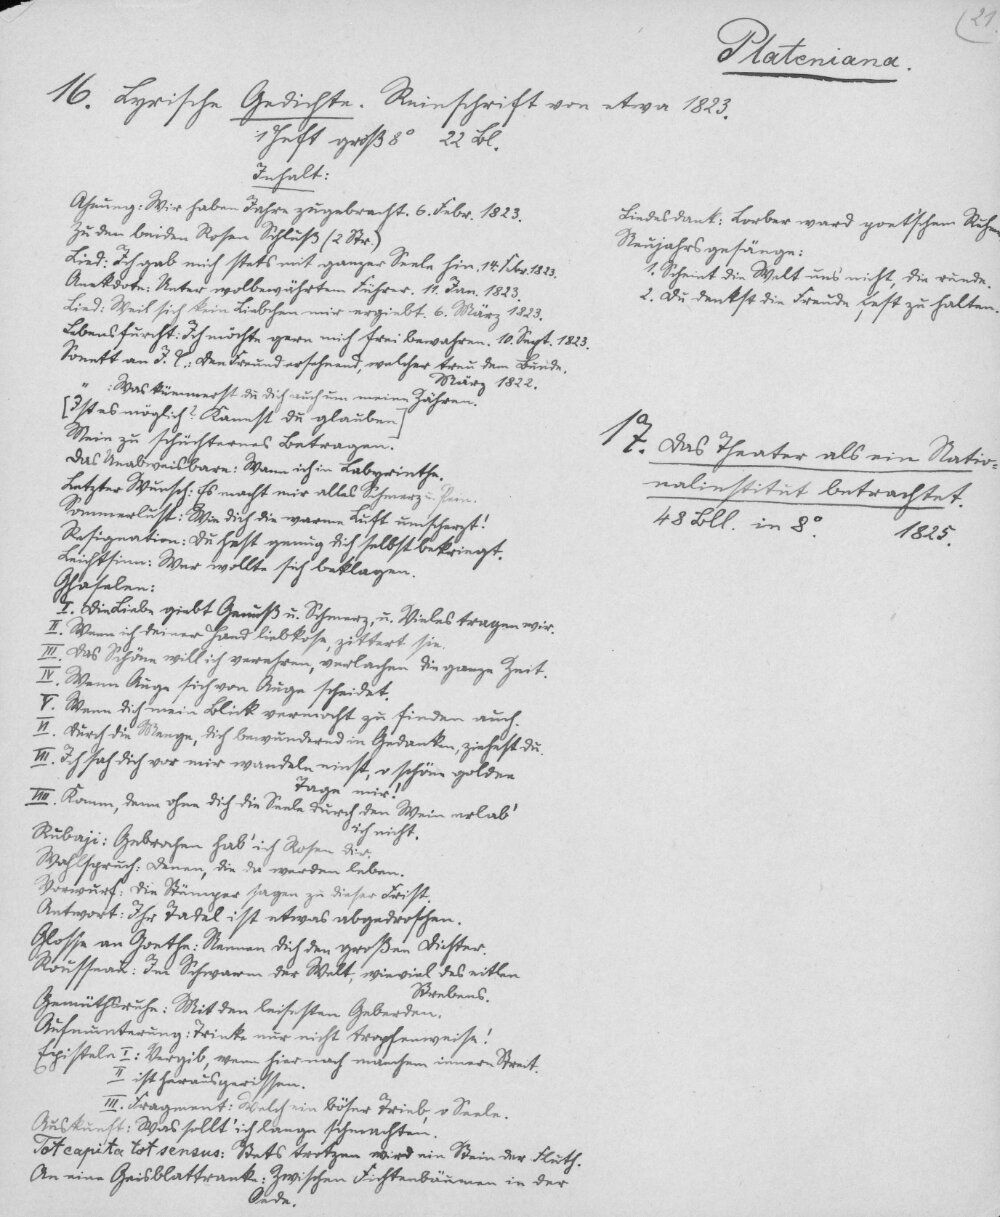 (21.
Plateniana.
16. Lyrische Gedichte. Reinschrift von etwa 1823.
1 Heft groß 8° 22 Bl.
Inhalt:
Ahnung: Wir haben Jahre zugebracht. 6. Febr. 1823.
Zu den beiden Rosen Schluß (2 Str.)
Lied: Ich gab mich stets mit ganzer Seele hin. 14. Febr. 1823.
Anekdote: Unter wolbewährtem Führer. 11. Jan. 1823.
Lied: Weil sich kein Liebchen mir ergiebt. 6. März 1823.
Lebensfurcht: Ich möchte gern mich frei bewahren. 10. Sept. 1823.
Sonett an J. L.: Den Freund ersehnend, welcher treu dem Bunde.
März 1822.
" : Was kümmerst du dich auch um meine Zähren.
[Ist es möglich? Kannst du glauben]
Mein zu schüchternes Betragen.
Das Unabweisbare: Wann ich in Labyrinthe.
Letzter Wunsch: Es macht mir alles Schmerz u. Pein.
Sommerlust: Wie dich die warme Luft umscherzt!
Resignation: Du hast genug dich selbst bekriegt.
Leichtsinn: Wer wollte sich beklagen.
Ghaselen:
I. Die Liebe giebt Genuß u. Schmerz, u. Vieles tragen wir.
II. Wenn ich deiner Hand liebkose, zittert sie.
III. Das Schöne will ich verehren, verlachen die ganze Zeit.
IV. Wenn Auge sich von Auge scheidet.
V. Wenn dich mein Blick vermocht zu finden auch.
VI. Durch die Menge, dich bewundernd in Gedanken, ziehest du.
VII. Ich sah dich vor mir wandeln einst, o schöne golden
Tage mir!
VIII. Komm, denn ohne dich die Seele durch den Wein erlab'
ich nicht.
Rubaji: Gebrochen hab' ich Rosen dir.
Wahlspruch: Denen, die da werden leben.
Vorwurf: Die Stümper sagen zu dieser Frist.
Antwort: Ihr Tadel ist etwas abgedroschen.
Glosse an Goethe: Nennen dich den großen Dichter.
Rousseau: Im Schwarm der Welt, wieviel des eitlen
Strebens.
Gemüthsruhe: Mit den leisesten Geberden.
Aufmunterung: Trinke nur nicht tropfenweise!
Episteln I: Vergib, wenn hier nach manchem innern Streit.
II ist herausgerissen.
III. Fragment: Welch ein böser Trieb, o Seele.
Auskunft: Was sollt' ich lange schmachten.
Tot capita tot sensus: Stets trotzen wird ein Stein der Fluth.
An eine Geisblattranke: Zwischen Fichtenbäumen in der
Oede.
Liedesdank: Lorber ward poet'schen
Neujahrsgesänge:
1. Scheint die Welt uns nicht, die runde.
2. Du denkst die Freude fest zu halten.
17. Das Theater als ein Natio-
nalinstitut betrachtet.
48 Bll. in 8°. 1825.